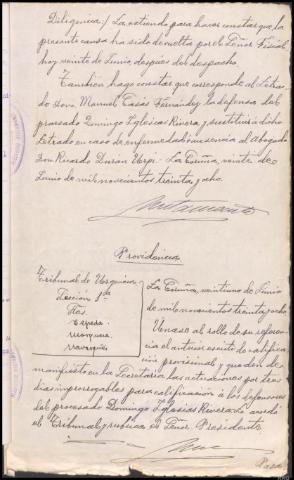 Diligencia:/ La extiendo para hacer constar que la
presente causa ha sido devuelta por el Señor Fiscal
hoy veinte de Junio despues del despacho.
Tambien hago constar que corresponde al Letra-
do Don Manuel Casás Fernández la defensa del
procesado Domingo Iglesias Rivera, y sustituirá a dicho
Letrado en caso de enfermedad o ausencia al Abogado
Don Ricardo Duran. La Coruña, veinte de
Junio de mil novecientos treinta y ocho.
Providencia
Tribunal de Urgencia
Sección 1ª
Ftas.
La Coruña, veintiuno de Junio
de mil novecientos treinta y ocho
Unase al rollo de su referen-
cia el antecedente escrito de califica-
ción provisional y queden de
manifiesto en la Secretaria las actuaciones por tres
dias improrrogables para calificación á los defensores
del procesado Domingo Iglesias Rivera. Lo acordó
el Tribunal y rubrica el Señor Presidente